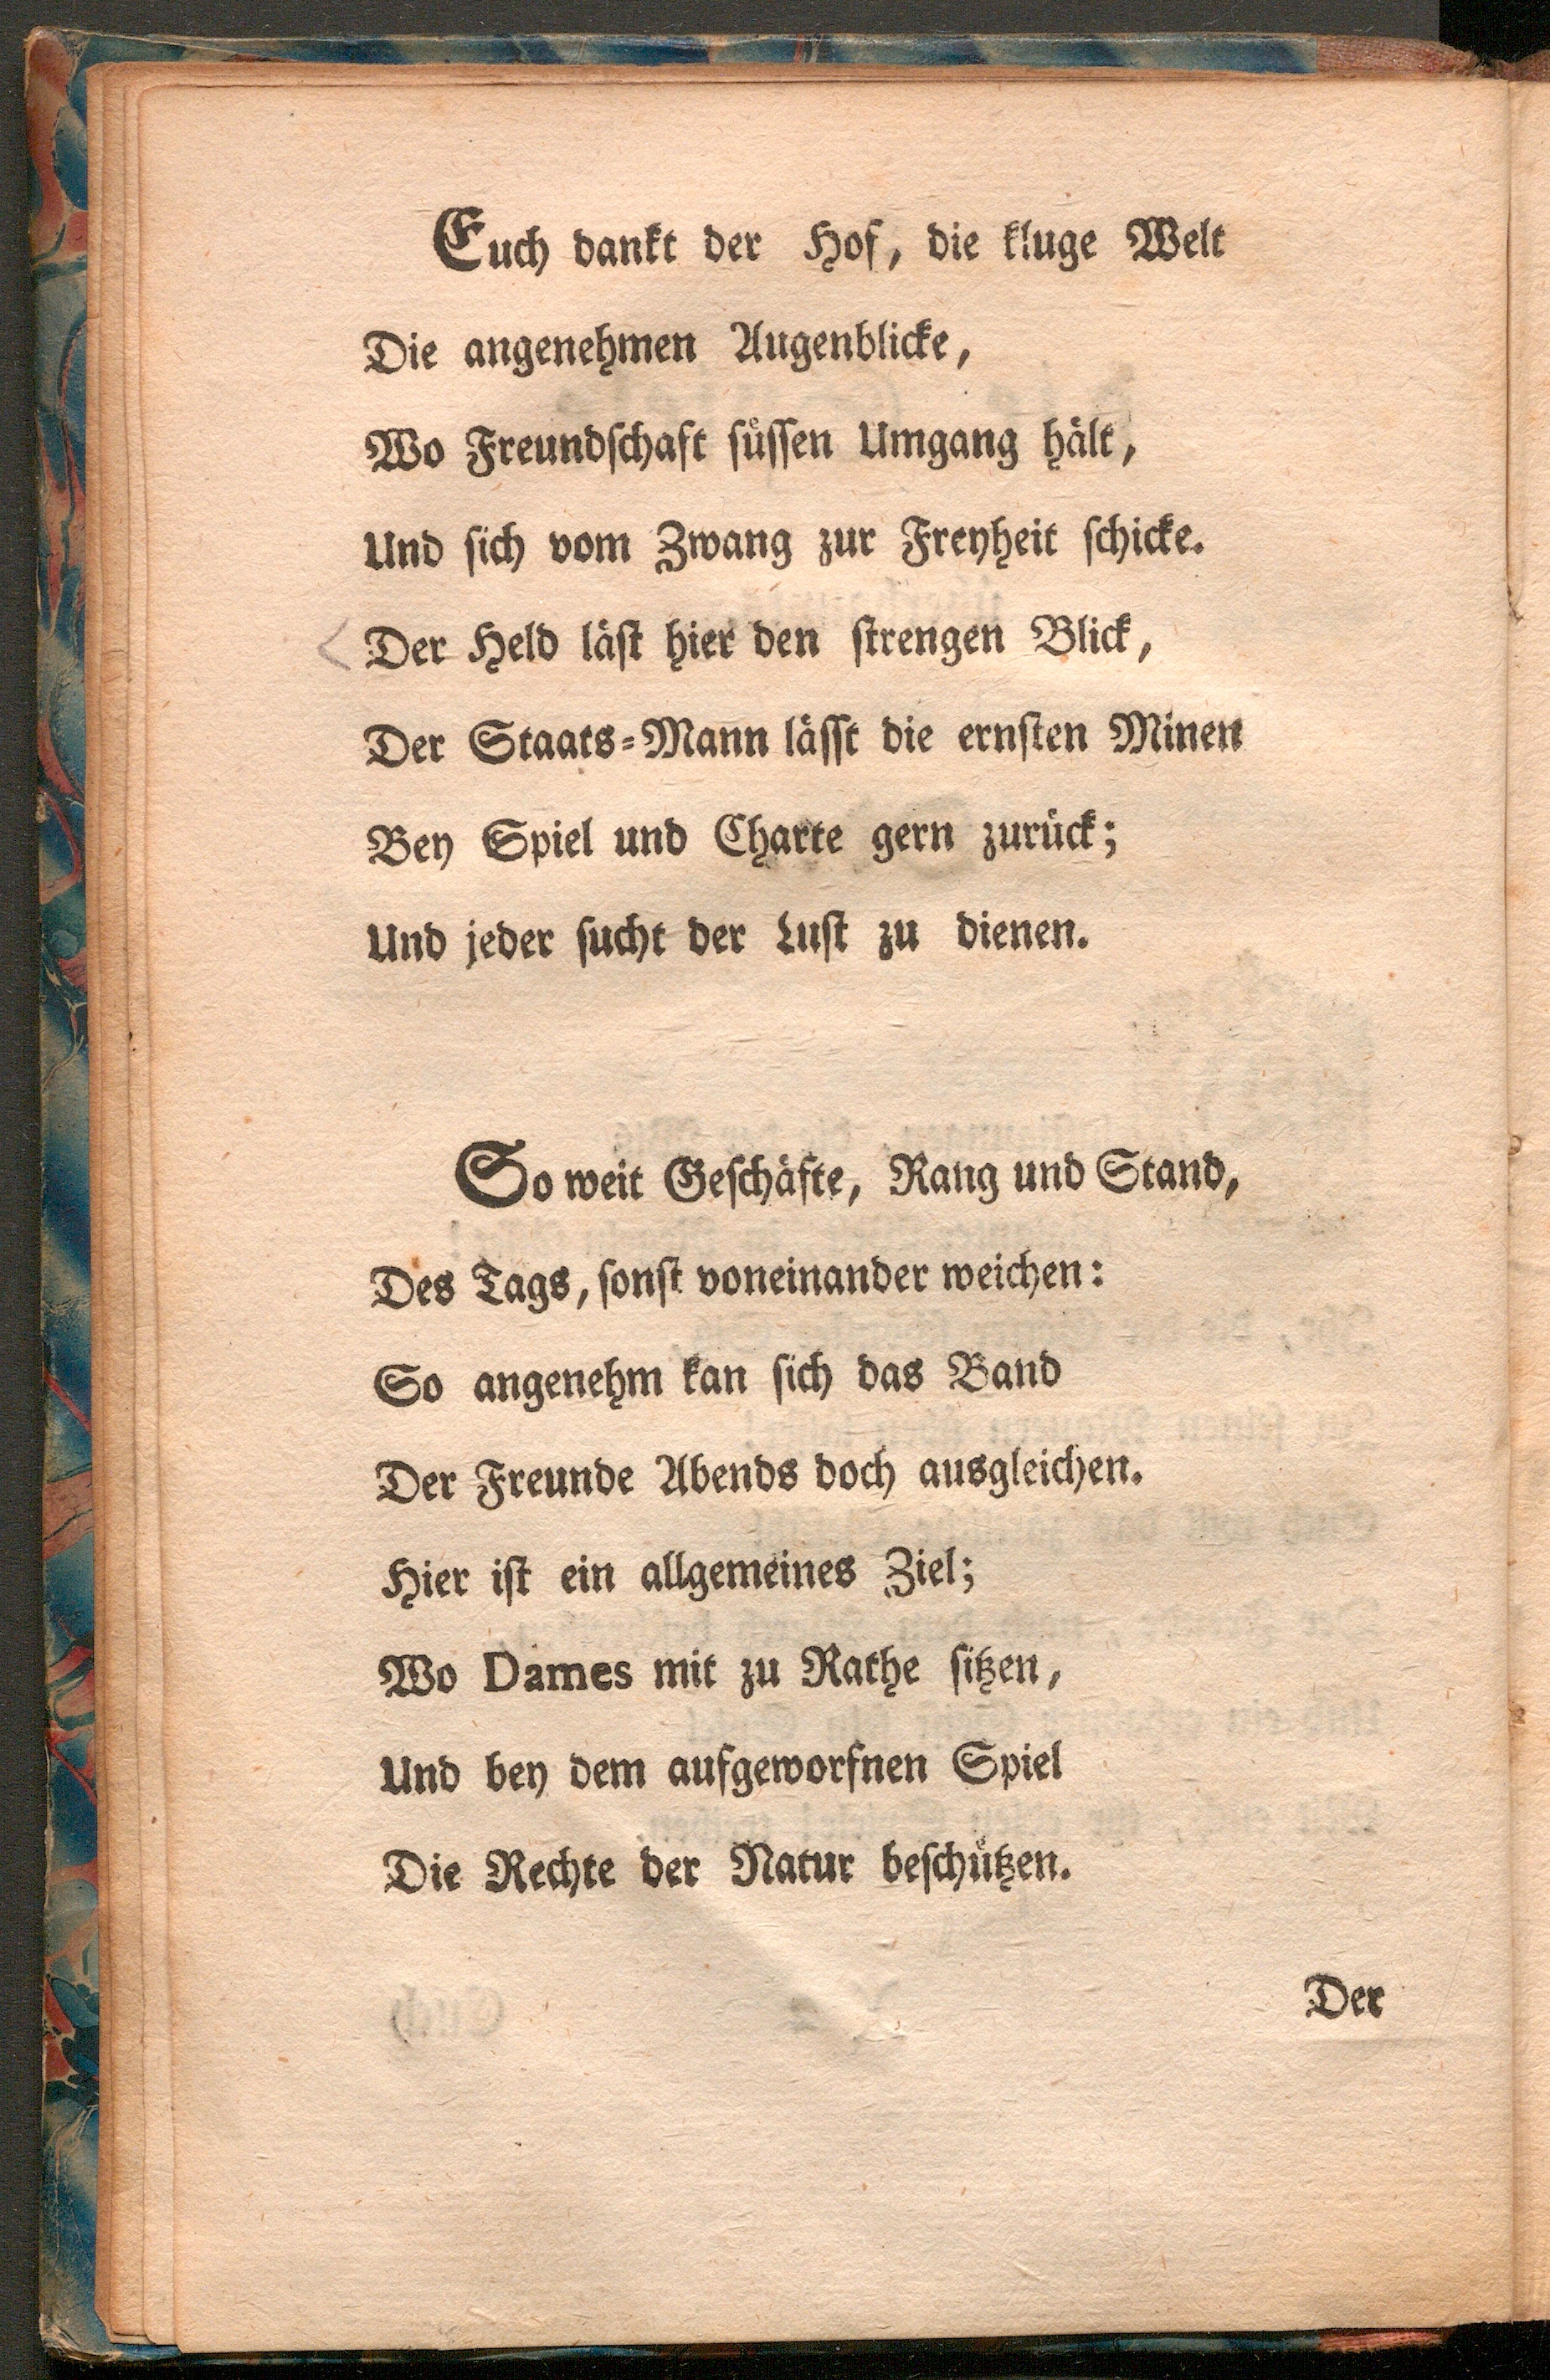 Euch dankt der Hof, die kluge Welt
Die angenehmen Augenblicke,
Wo Freundſchaft ſüſſen Umgang hält,
Und ſich vom Zwang zur Freyheit ſchicke.
Der Held läſt hier den ſtrengen Blick,
Der Staats-Mann läſſt die ernſten Minen
Bey Spiel und Charte gern zurück;
Und jeder ſucht der Luſt zu dienen.
So weit Geſchäfte, Rang und Stand,
Des Tags, ſonſt voneinander weichen:
So angenehm kan ſich das Band
Der Freunde Abends doch ausgleichen.
Hier iſt ein allgemeines Ziel;
Wo Dames mit zu Rathe ſitzen,
Und bey dem aufgeworfnen Spiel
Die Rechte der Natur beſchützen.
Der